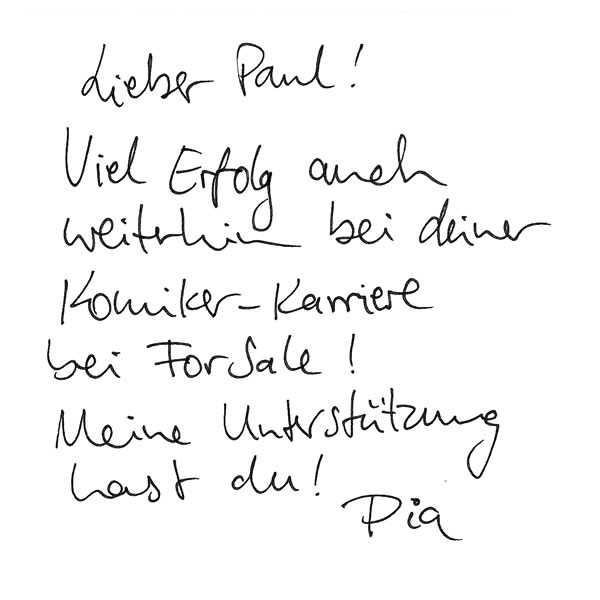 Lieber Paul!
Viel Erfolg auch
weiterhin bei deiner
Komiker-Karriere
bei ForSale!
Meine Unterstützung
hast du!
Pia